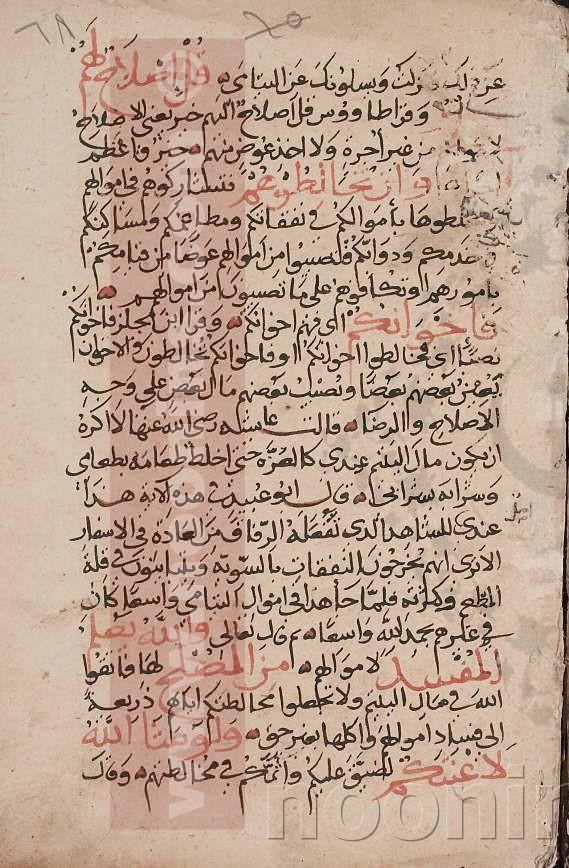 ٦٨
عز وجل ويسلونك عن اليتامى قل اصلاح لهم
وقرا طاووس قل اصلاح اليهم خير يعنى الاصلاح
من غير اجرة ولا اخذ عوض منهم خير واعظم
وان تخالطوهم فتشاركوهم فى اموالهم
وتخلطوها باموالكم فى نفقاتكم ومطاعمكم ومساكنكم
وخدمكم ودوابكم فتصيبوا من اموالهم عوضا من قيامكم
بامورهم او تكافوهم على ما تصيبون من اموالهم
فاخوانكم اى فهم اخوانكم وقرا ابن مجلز فاخوانكم
نصبا اى تخالطوا اخوانكم او فاخوانكم تخالطون والاخوان
يعين بعضهم بعضا ويصيب بعضهم مال بعض على وجه
الاصلاح والرضا قالت عائشه رضى الله عنها لاكره
ان يكون مال اليتيم عندى كالعرة حتى اخلط طعامه بطعامى
وشرابه بشرابى قال ابو عبيد فى هذه الاية هذا
عندى للمشاهد الذى تفعله الرفاق من العادة فى الاسفار
الا ترى انهم يخرجون النفقات بالسوية ويتباينون فى قلة
المطعم وكثرته فلما جا هذا فى اموال اليتامى واسعا كان
فى غيرهم بحمد الله واسعا ثم قال تعالى والله يعلم
المفسد لاموالهم من المصلح لها فاتقوا
الله فى مال اليتيم ولا تجعلوا مخالطتكم اياهم ذريعة
الى فساد اموالهم واكلها بغير حق ولو شا الله
لاعنتكم لضيق عليكم واثمكم فى مخالطتهم وقال
noonin